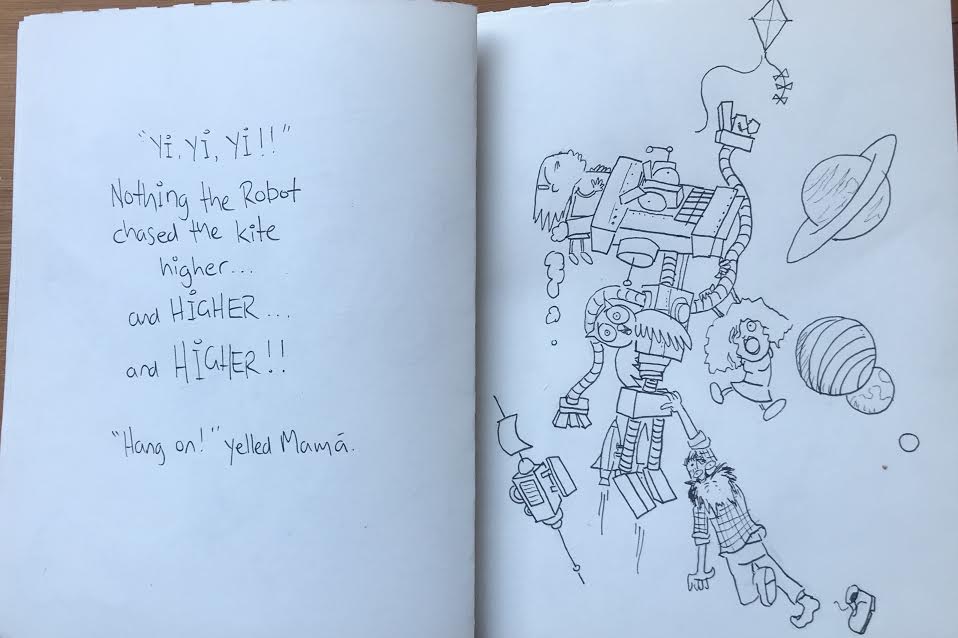 "Yi, Yi, Yi!!"
Nothing the Robot
chased the kite
higher...
and HIGHER...
and HIGHER!!
"Hang on!" yelled Mamá.